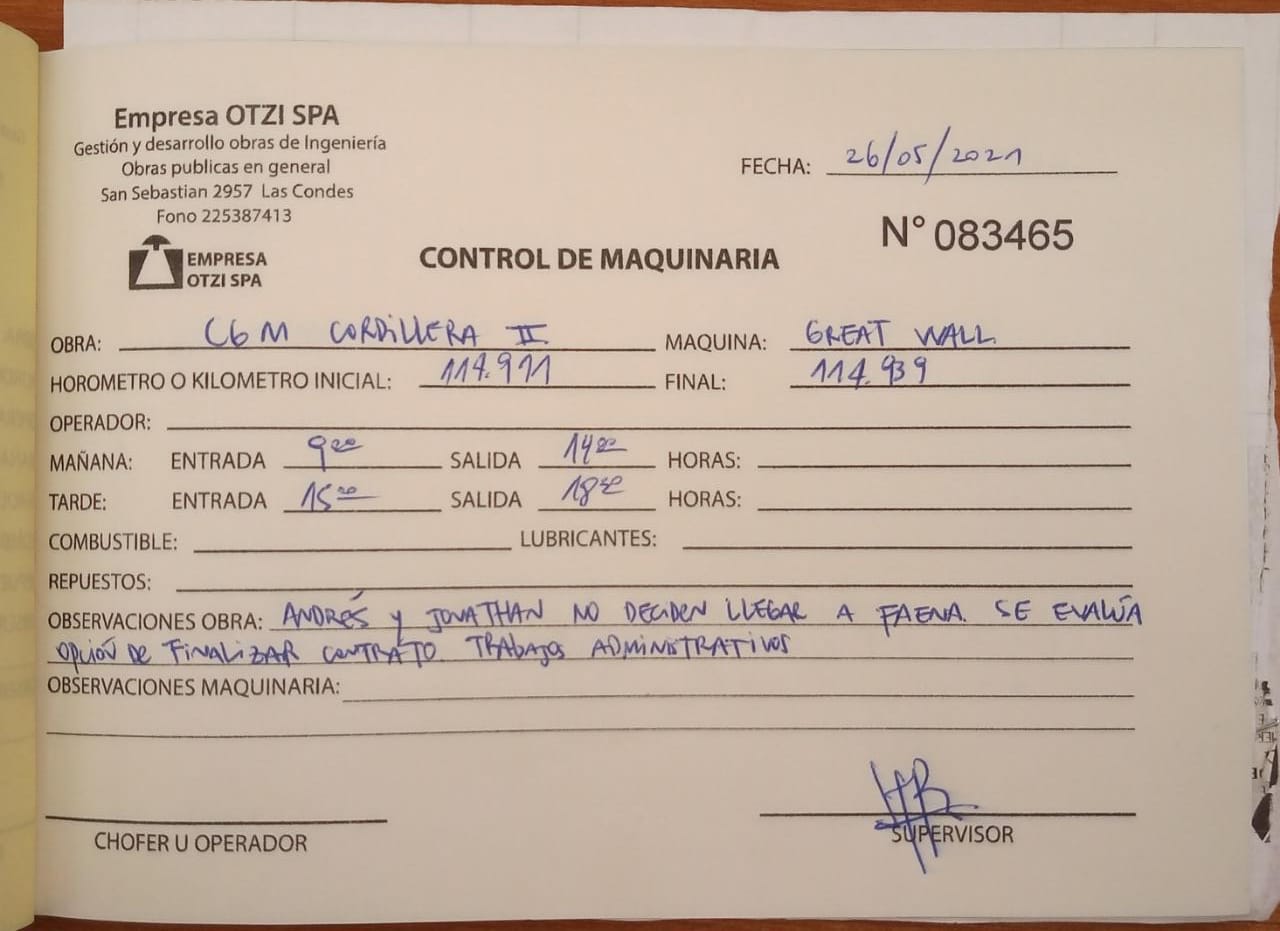 Empresa OTZI SPA
Gestión y desarrollo obras de Ingeniería
Obras publicas en general
San Sebastian 2957 Las Condes
Fono 225387413
FECHA: 26/05/2021
N° 083465
EMPRESA
OTZI SPA
CONTROL DE MAQUINARIA
OBRA: CGM CORDILLERA II MAQUINA: GREAT WALL
HOROMETRO O KILOMETRO INICIAL: 114.911 FINAL: 114.939
OPERADOR:
MAÑANA: ENTRADA 9 00 SALIDA 14 00 HORAS:
TARDE: ENTRADA 15 00 SALIDA 18 HORAS:
COMBUSTIBLE: LUBRICANTES:
REPUESTOS:
OBSERVACIONES OBRA: ANDRÉS y JONATHAN NO DECIDEN LLEGAR A FAENA. SE EVALÚA
OPCIÓN DE FINALIZAR CONTRATO. TRABAJOS ADMINISTRATIVOS
OBSERVACIONES MAQUINARIA:
CHOFER U OPERADOR SUPERVISOR